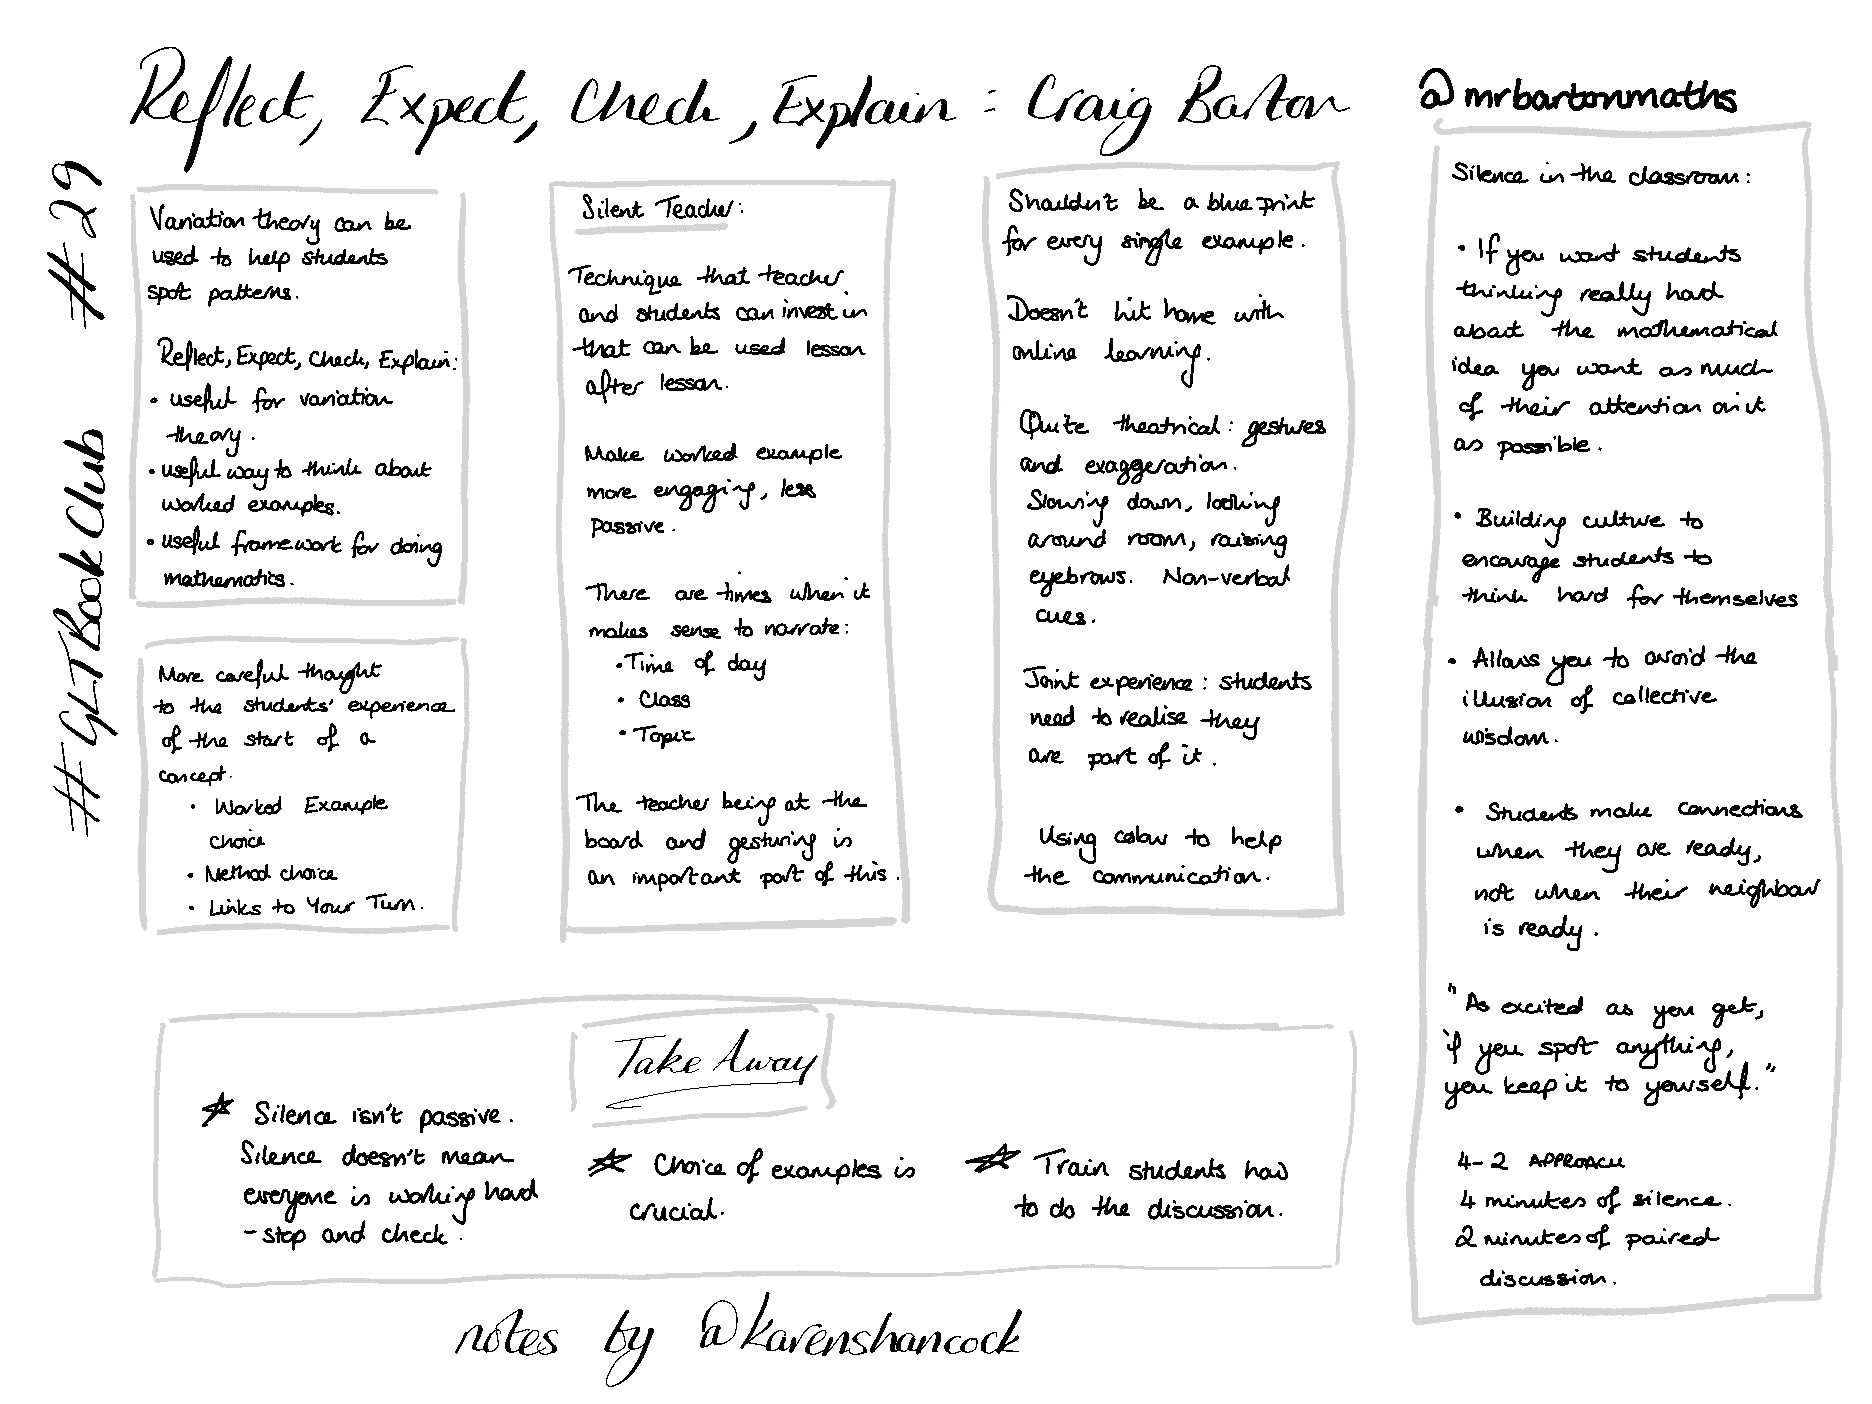 Reflect, Expect, Check, Explain : Craig Barton
@mrbartonmaths
#GLTBookClub #29
Variation theory can be
used to help students
spot patterns.
Reflect, Expect, Check, Explain:
• useful for variation
theory.
• useful way to think about
worked examples.
• useful framework for doing
mathematics.
More careful thought
to the students' experience
of the start of a
concept.
• Worked Example
choice
• Method choice
• Links to Your Turn.
Silent Teacher:
Technique that teacher
and students can invest in
that can be used lesson
after lesson.
Make worked example
more engaging, less
passive.
There are times when it
makes sense to narrate:
• Time of day
• Class
• Topic
The teacher being at the
board and gesturing is
an important part of this.
Shouldn't be a blueprint
for every single example.
Doesn't hit home with
online learning.
Quite theatrical: gestures
and exaggeration.
Slowing down, looking
around room, raising
eyebrows. Non-verbal
cues.
Joint experience: students
need to realise they
are part of it.
Using colour to help
the communication.
Silence in the classroom:
• If you want students
thinking really hard
about the mathematical
idea you want as much
of their attention on it
as possible.
• Building culture to
encourage students to
think hard for themselves
• Allows you to avoid the
illusion of collective
wisdom.
• Students make connections
when they are ready,
not when their neighbour
is ready.
"As excited as you get,
if you spot anything,
you keep it to yourself."
4-2 APPROACH
4 minutes of silence.
2 minutes of paired
discussion.
Take Away
☆ Silence isn't passive.
Silence doesn't mean
everyone is working hard
- stop and check.
☆ Choice of examples is
crucial.
☆ Train students how
to do the discussion.
notes by @karenshancock